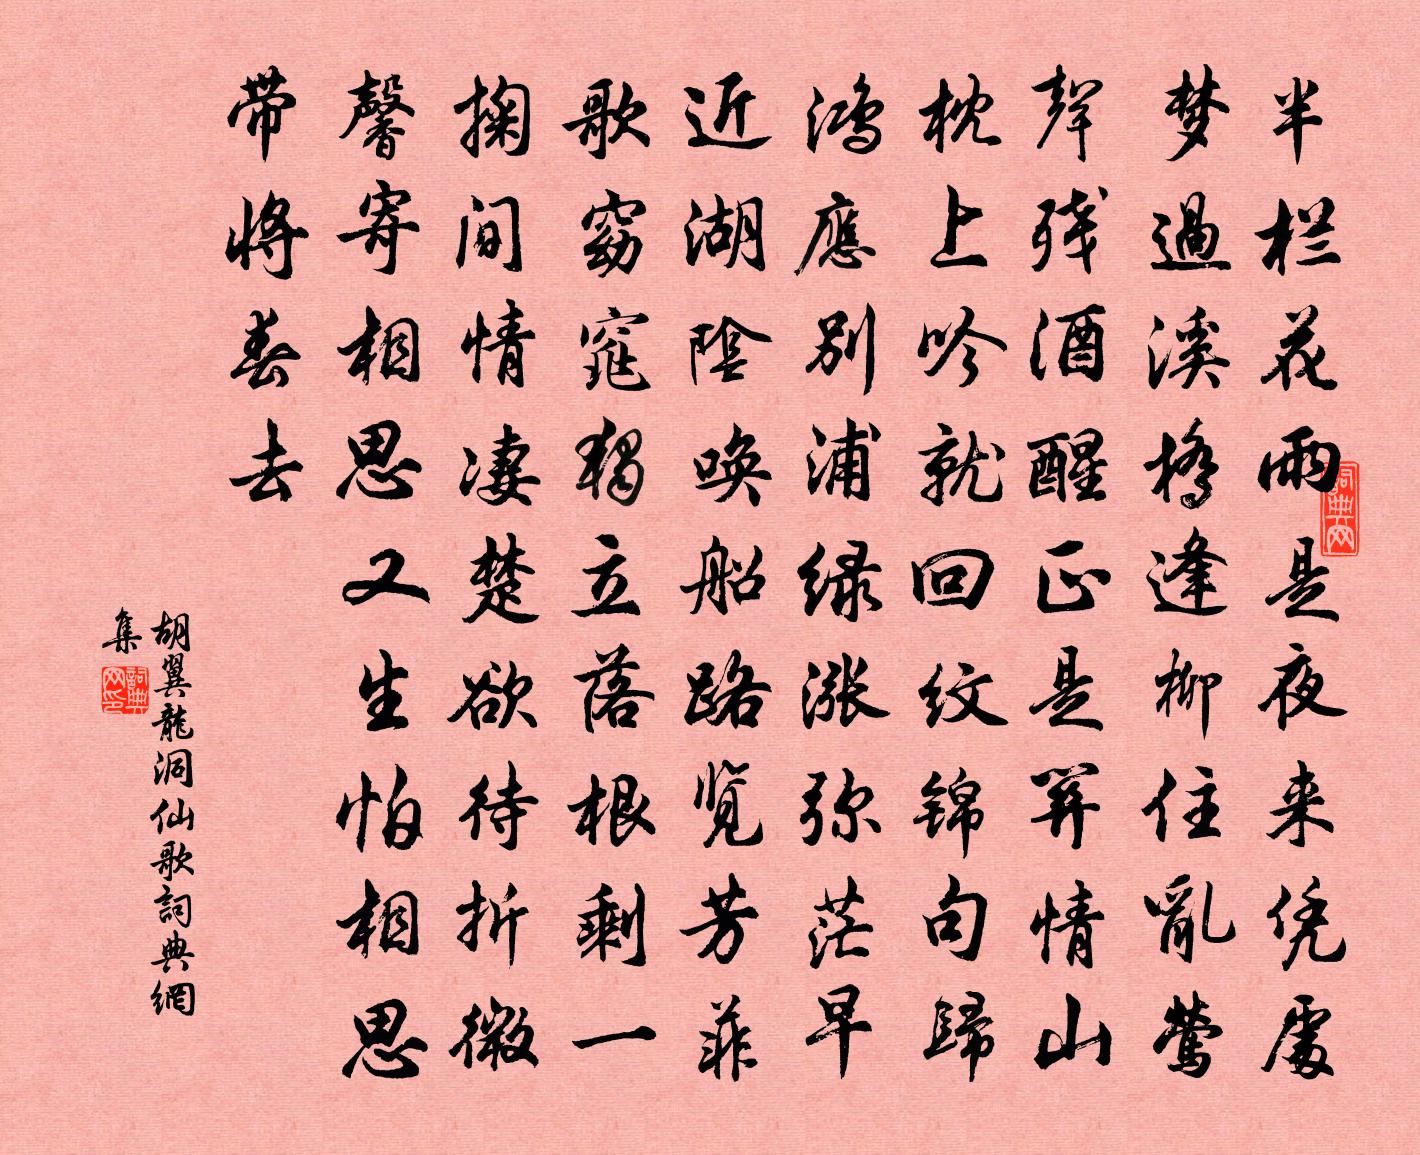 半栏花雨是夜来凭處
梦過溪橋逢柳住亂莺
聲残酒醒正是閑情山
枕上吟就回纹锦句歸
鸿應别浦绿涨弥茫早
近湖陰唤船路览芳菲
歌窈窕独立落根剩一
掬间情凄楚欲待折微
馨寄相思又生怕相思
带將春去
胡翼龍洞仙歌詞典網
集
詞典网
詞典网印